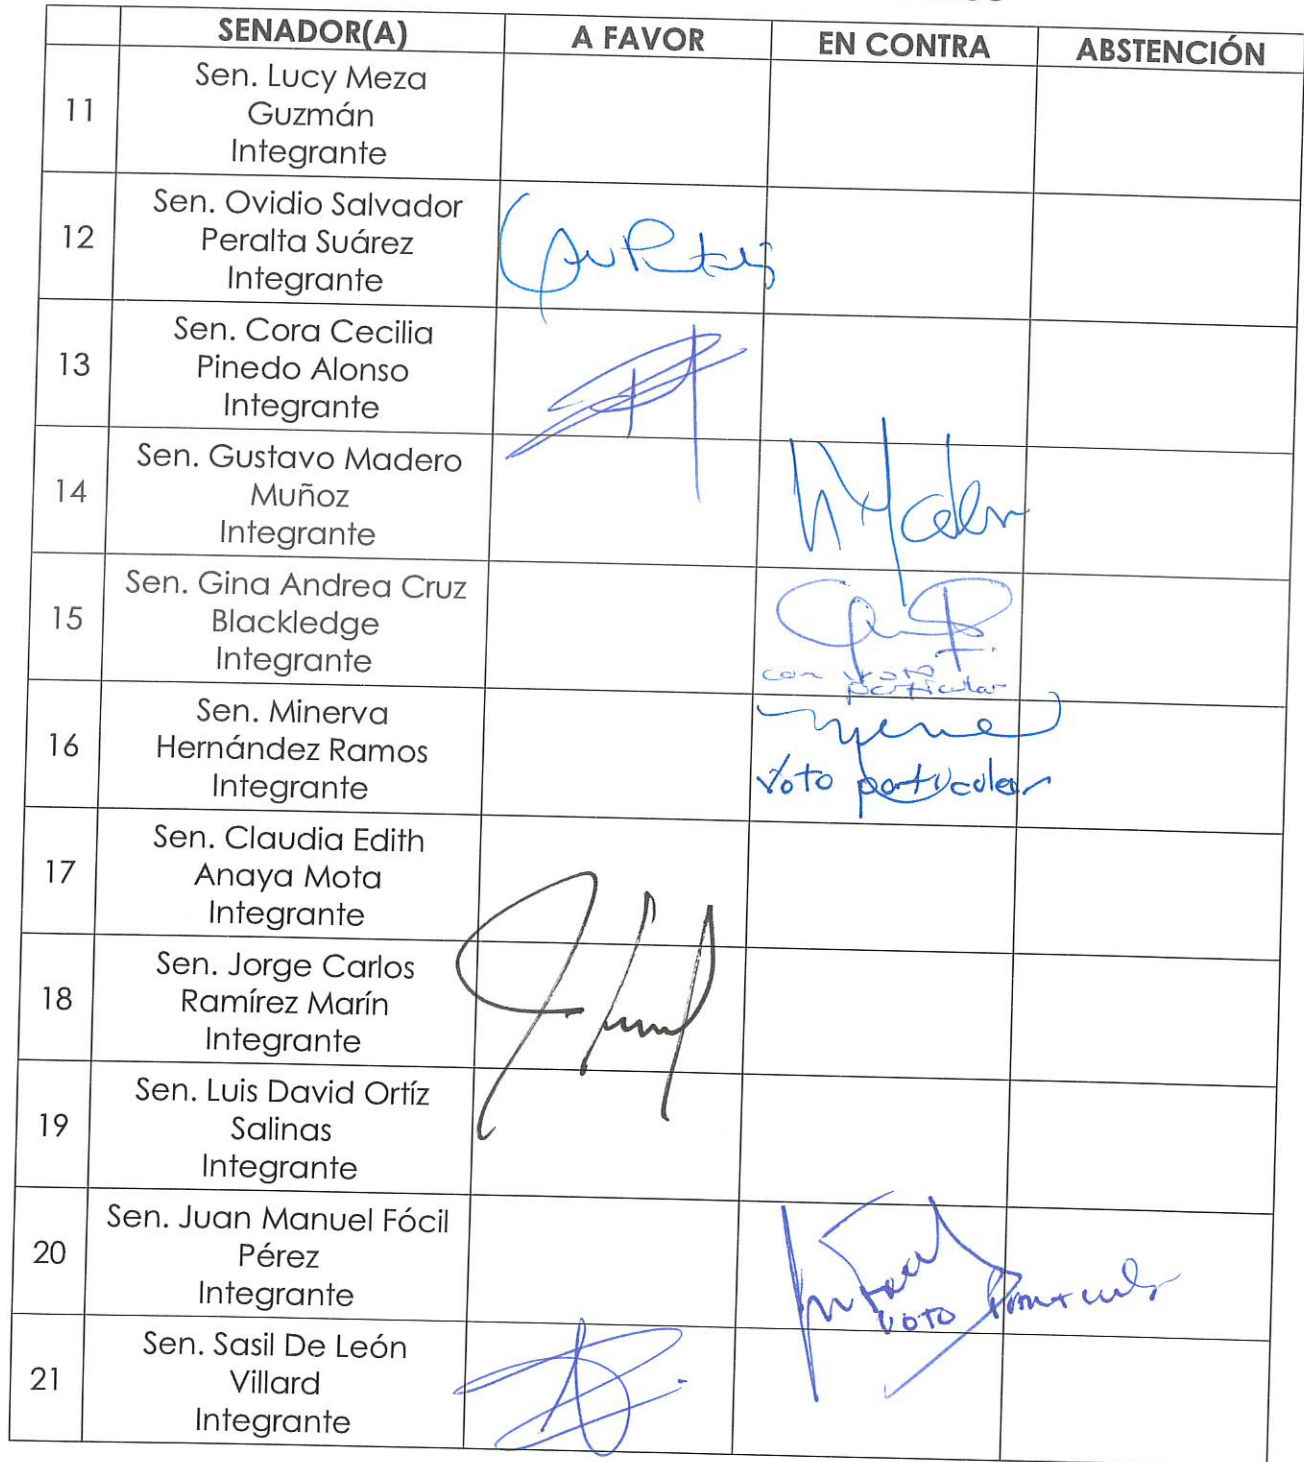 SENADOR(A) A FAVOR EN CONTRA ABSTENCIÓN
Sen. Lucy Meza
11 Guzmán
Integrante
Sen. Ovidio Salvador
12 Peralta Suárez
Integrante
Sen. Cora Cecilia
13 Pinedo Alonso
Integrante
Sen. Gustavo Madero
14 Muñoz
Integrante
Sen. Gina Andrea Cruz
15 Blackledge
Integrante
con voto
particular
Sen. Minerva
16 Hernández Ramos
Integrante
Voto particular
Sen. Claudia Edith
17 Anaya Mota
Integrante
Sen. Jorge Carlos
18 Ramírez Marín
Integrante
Sen. Luis David Ortíz
19 Salinas
Integrante
Sen. Juan Manuel Fócil
20 Pérez
Integrante
voto
Sen. Sasil De León
21 Villard
Integrante